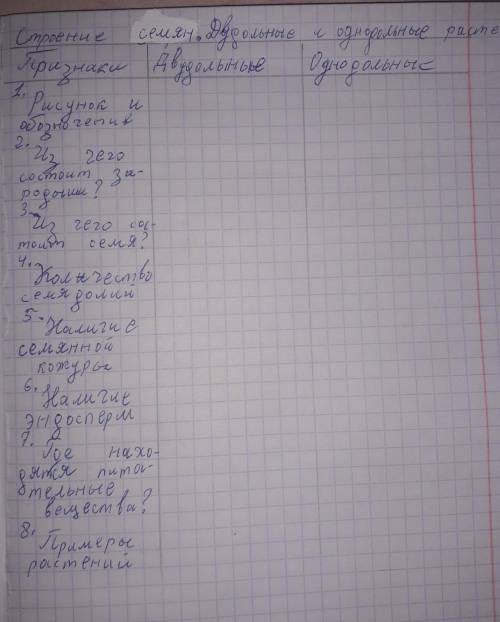 Строение семян. Двудольные и однодольные расте
Признаки Двудольные Однодольные
1. Рисунок и
обозначения
2. Из чего
состоит за-
родыш?
3. Из чего сос-
тоит семя?
4. Количество
семядолий
5. Наличие
семянной
кожуры
6. Наличие
эндосперм
7. Где нахо-
дятся пита-
тельные
вещества?
8. Примеры
растений